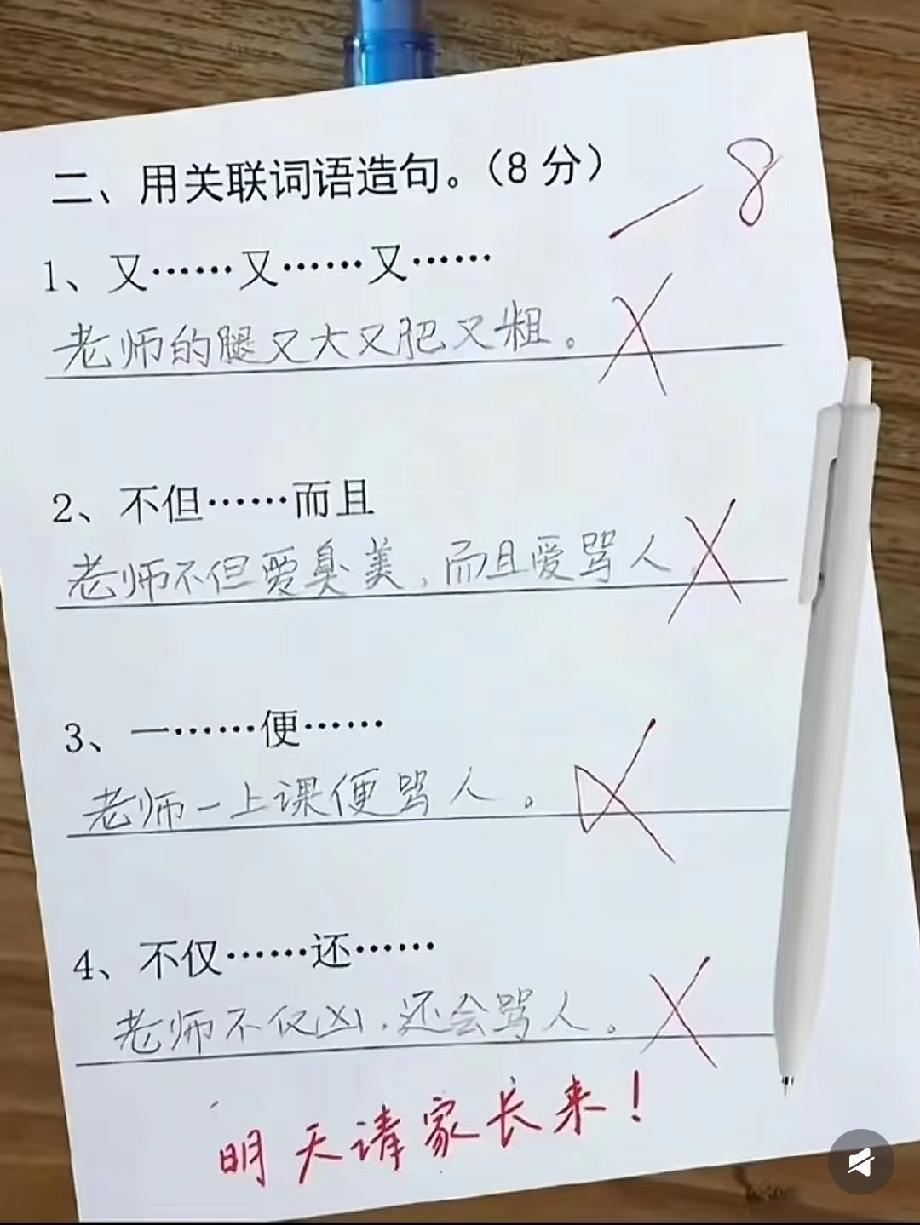 二、用关联词语造句。(8分)
-8
1、又……又……又……
老师的腿又大又肥又粗。
2、不但……而且
老师不但爱臭美,而且爱骂人
3、一……便……
老师一上课便骂人。
4、不仅……还……
老师不仅凶,还会骂人。
明天请家长来!